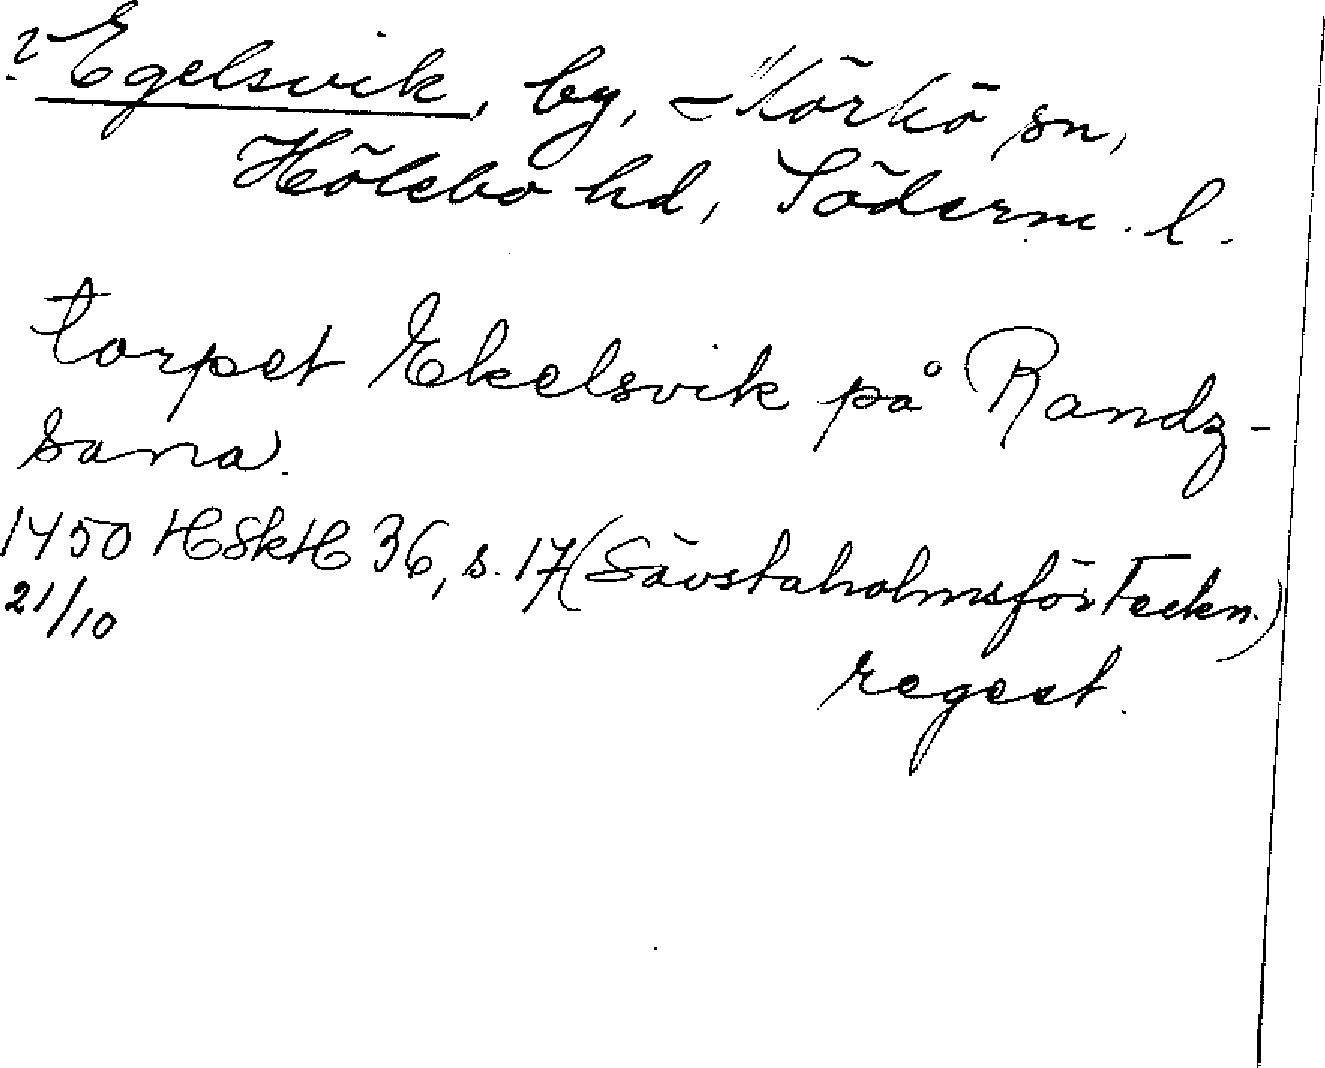 ? Egelsvik, by, Mörkö sn,
Hölebo hd, Söderm. l.
torpet Ekelsvik på Randz-
sama.
1450 HSkH 36, s. 17 (Sävstaholmsförteckn.)
21/10
regest.